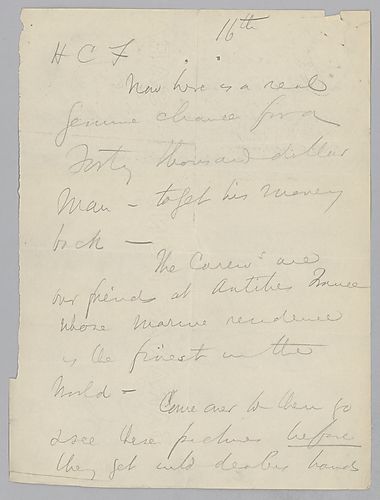 16th
H C F
Now here is a real
genuine chance for a
Forty thousand dollar
Man - to get his money
back -
The Carews are
our friends at Antibes France
whose marine residence
is the finest in the
World -
Come over to them go
& see these pictures before
they get into dealers hands